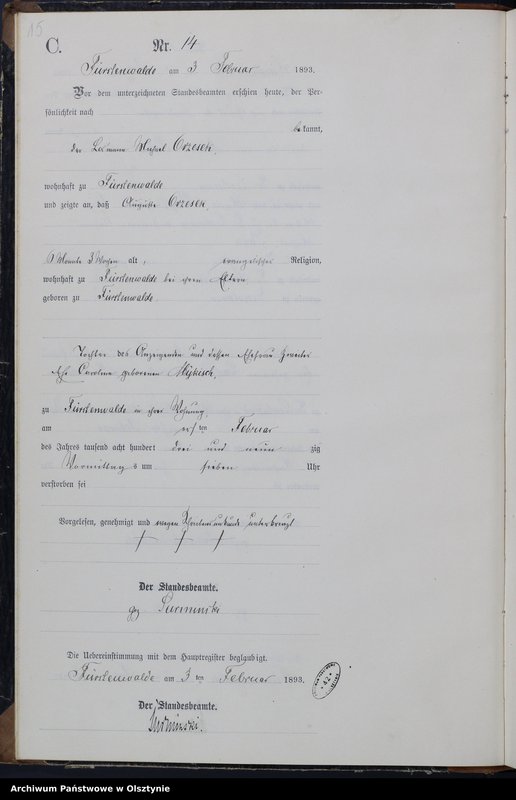 15
C.
Nr. 14
Fürstenwalde am 3 Februar 1893.
Vor dem unterzeichneten Standesbeamten erschien heute, der Per-
sönlichkeit nach
bekannt,
der Losmann Michael Orzesek,
wohnhaft zu Fürstenwalde
und zeigte an, daß Auguste Orzesek,
6 Monate 3 Wochen alt, evangelischer Religion,
wohnhaft zu Fürstenwalde bei ihren Eltern
geboren zu Fürstenwalde
Tochter des Anzeigenden und dessen Ehefrau zweiter
Ehe Caroline geborenen
zu Fürstenwalde in ihrer Wohnung,
am ersten Februar
des Jahres tausend acht hundert drei und neun zig
Vormittags um sieben Uhr
verstorben sei
Vorgelesen, genehmigt und wegen Schreibensunkunde unterkreuzt
+ + +
Der Standesbeamte.
gez
Die Uebereinstimmung mit dem Hauptregister beglaubigt.
Fürstenwalde am 3 ten Februar 1893.
Der Standesbeamte.
Archiwum Państwowe w Olsztynie